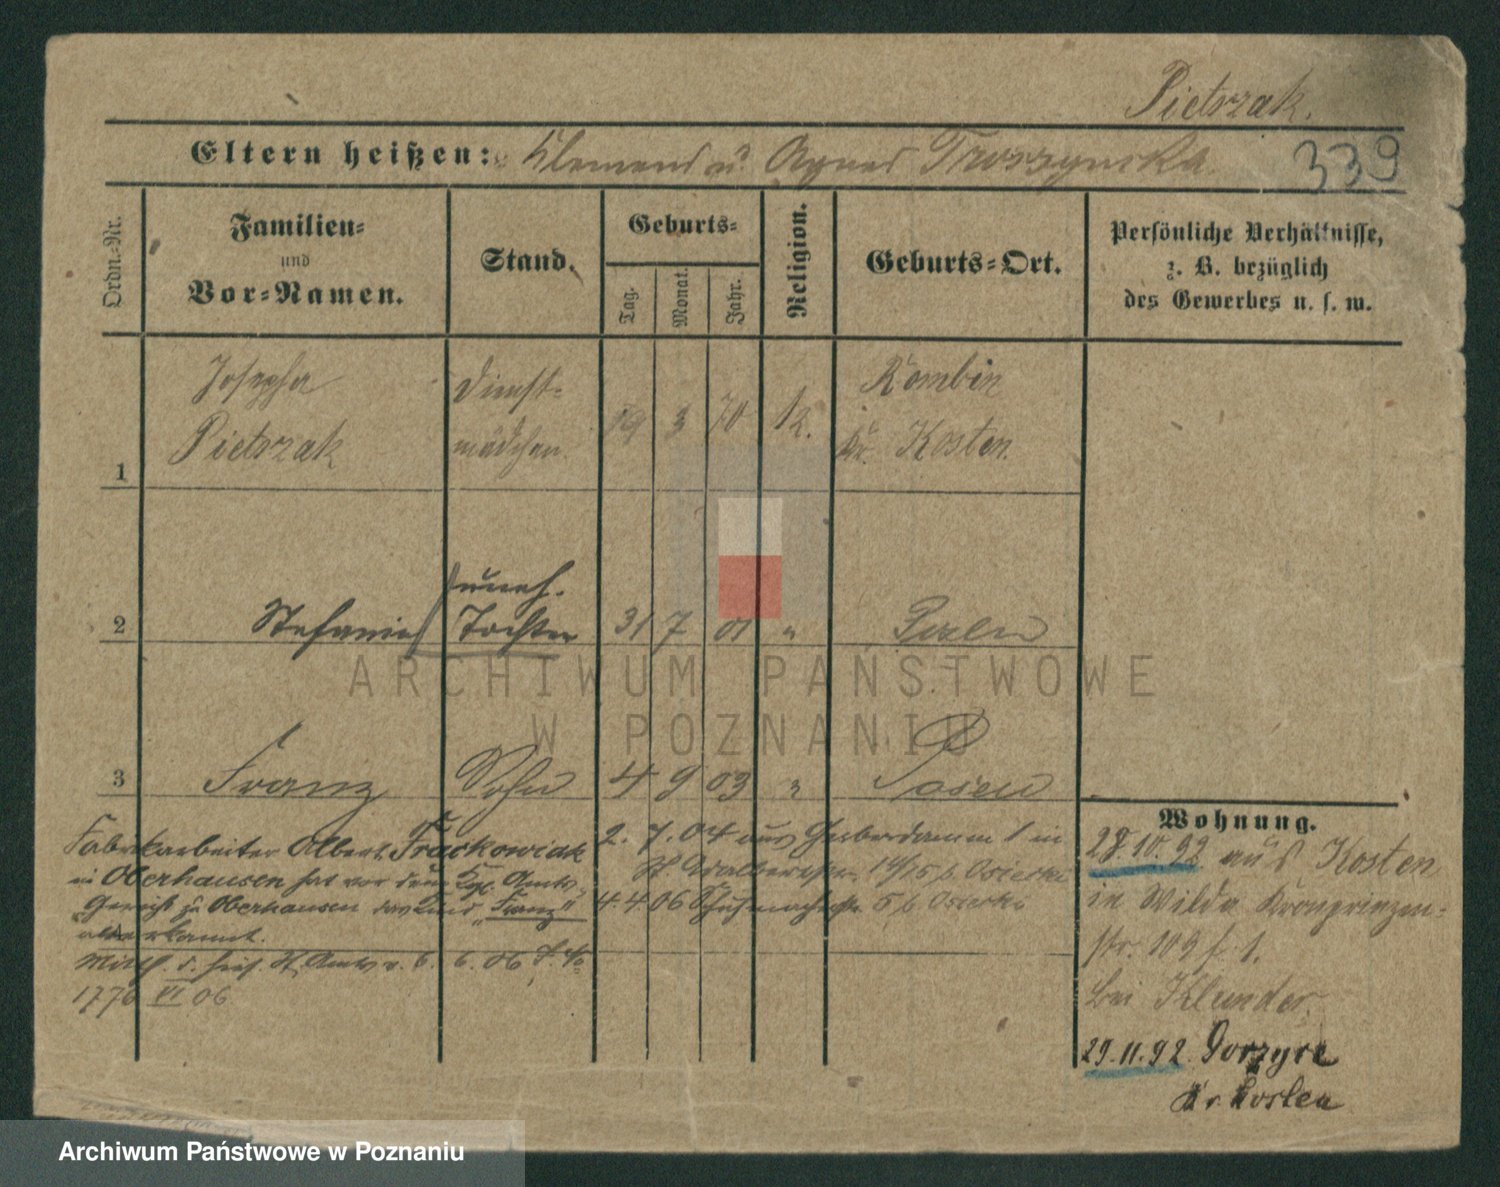 Pietrzak.
Eltern heißen: Klemens u. Agnes Troszynska.
339
Ordn.-Nr.
Familien-
und
Vor-Namen.
Stand.
Geburts-
Tag.
Monat.
Jahr.
Religion.
Geburts-Ort.
Persönliche Verhältnisse,
z. B. bezüglich
des Gewerbes u. s. w.
1
Josepha
Pietrzak
Dienst-
mädchen.
19 3 70 k.
Kombin
Kr. Kosten.
2
Stefanie
uneh.
Tochter
31 7 01 "
Posen
3
Franz Sohn 4 9 03 " Posen
Fabrikarbeiter Albert Frackowiak
in Oberhausen hat vor dem Kgl. Amts-
Gericht zu Oberhausen das Kind "Franz"
anerkannt.
Mitth. d. St. Amts v. 6. 6. 06
1776 VI 06
2. 7. 04 aus Gerberdamm 1 in
St Adalbertstr. 14/15 b.
4. 4. 06 Schuhmacherstr. 5 b.
Wohnung.
28.10.92 aus Kosten
in Wilda Kronprinzen-
str. 109 b.
bei Klunder.
29.11.92. Gorzyce
Kr. Kosten
ARCHIWUM PAŃSTWOWE
W POZNANIU
Archiwum Państwowe w Poznaniu